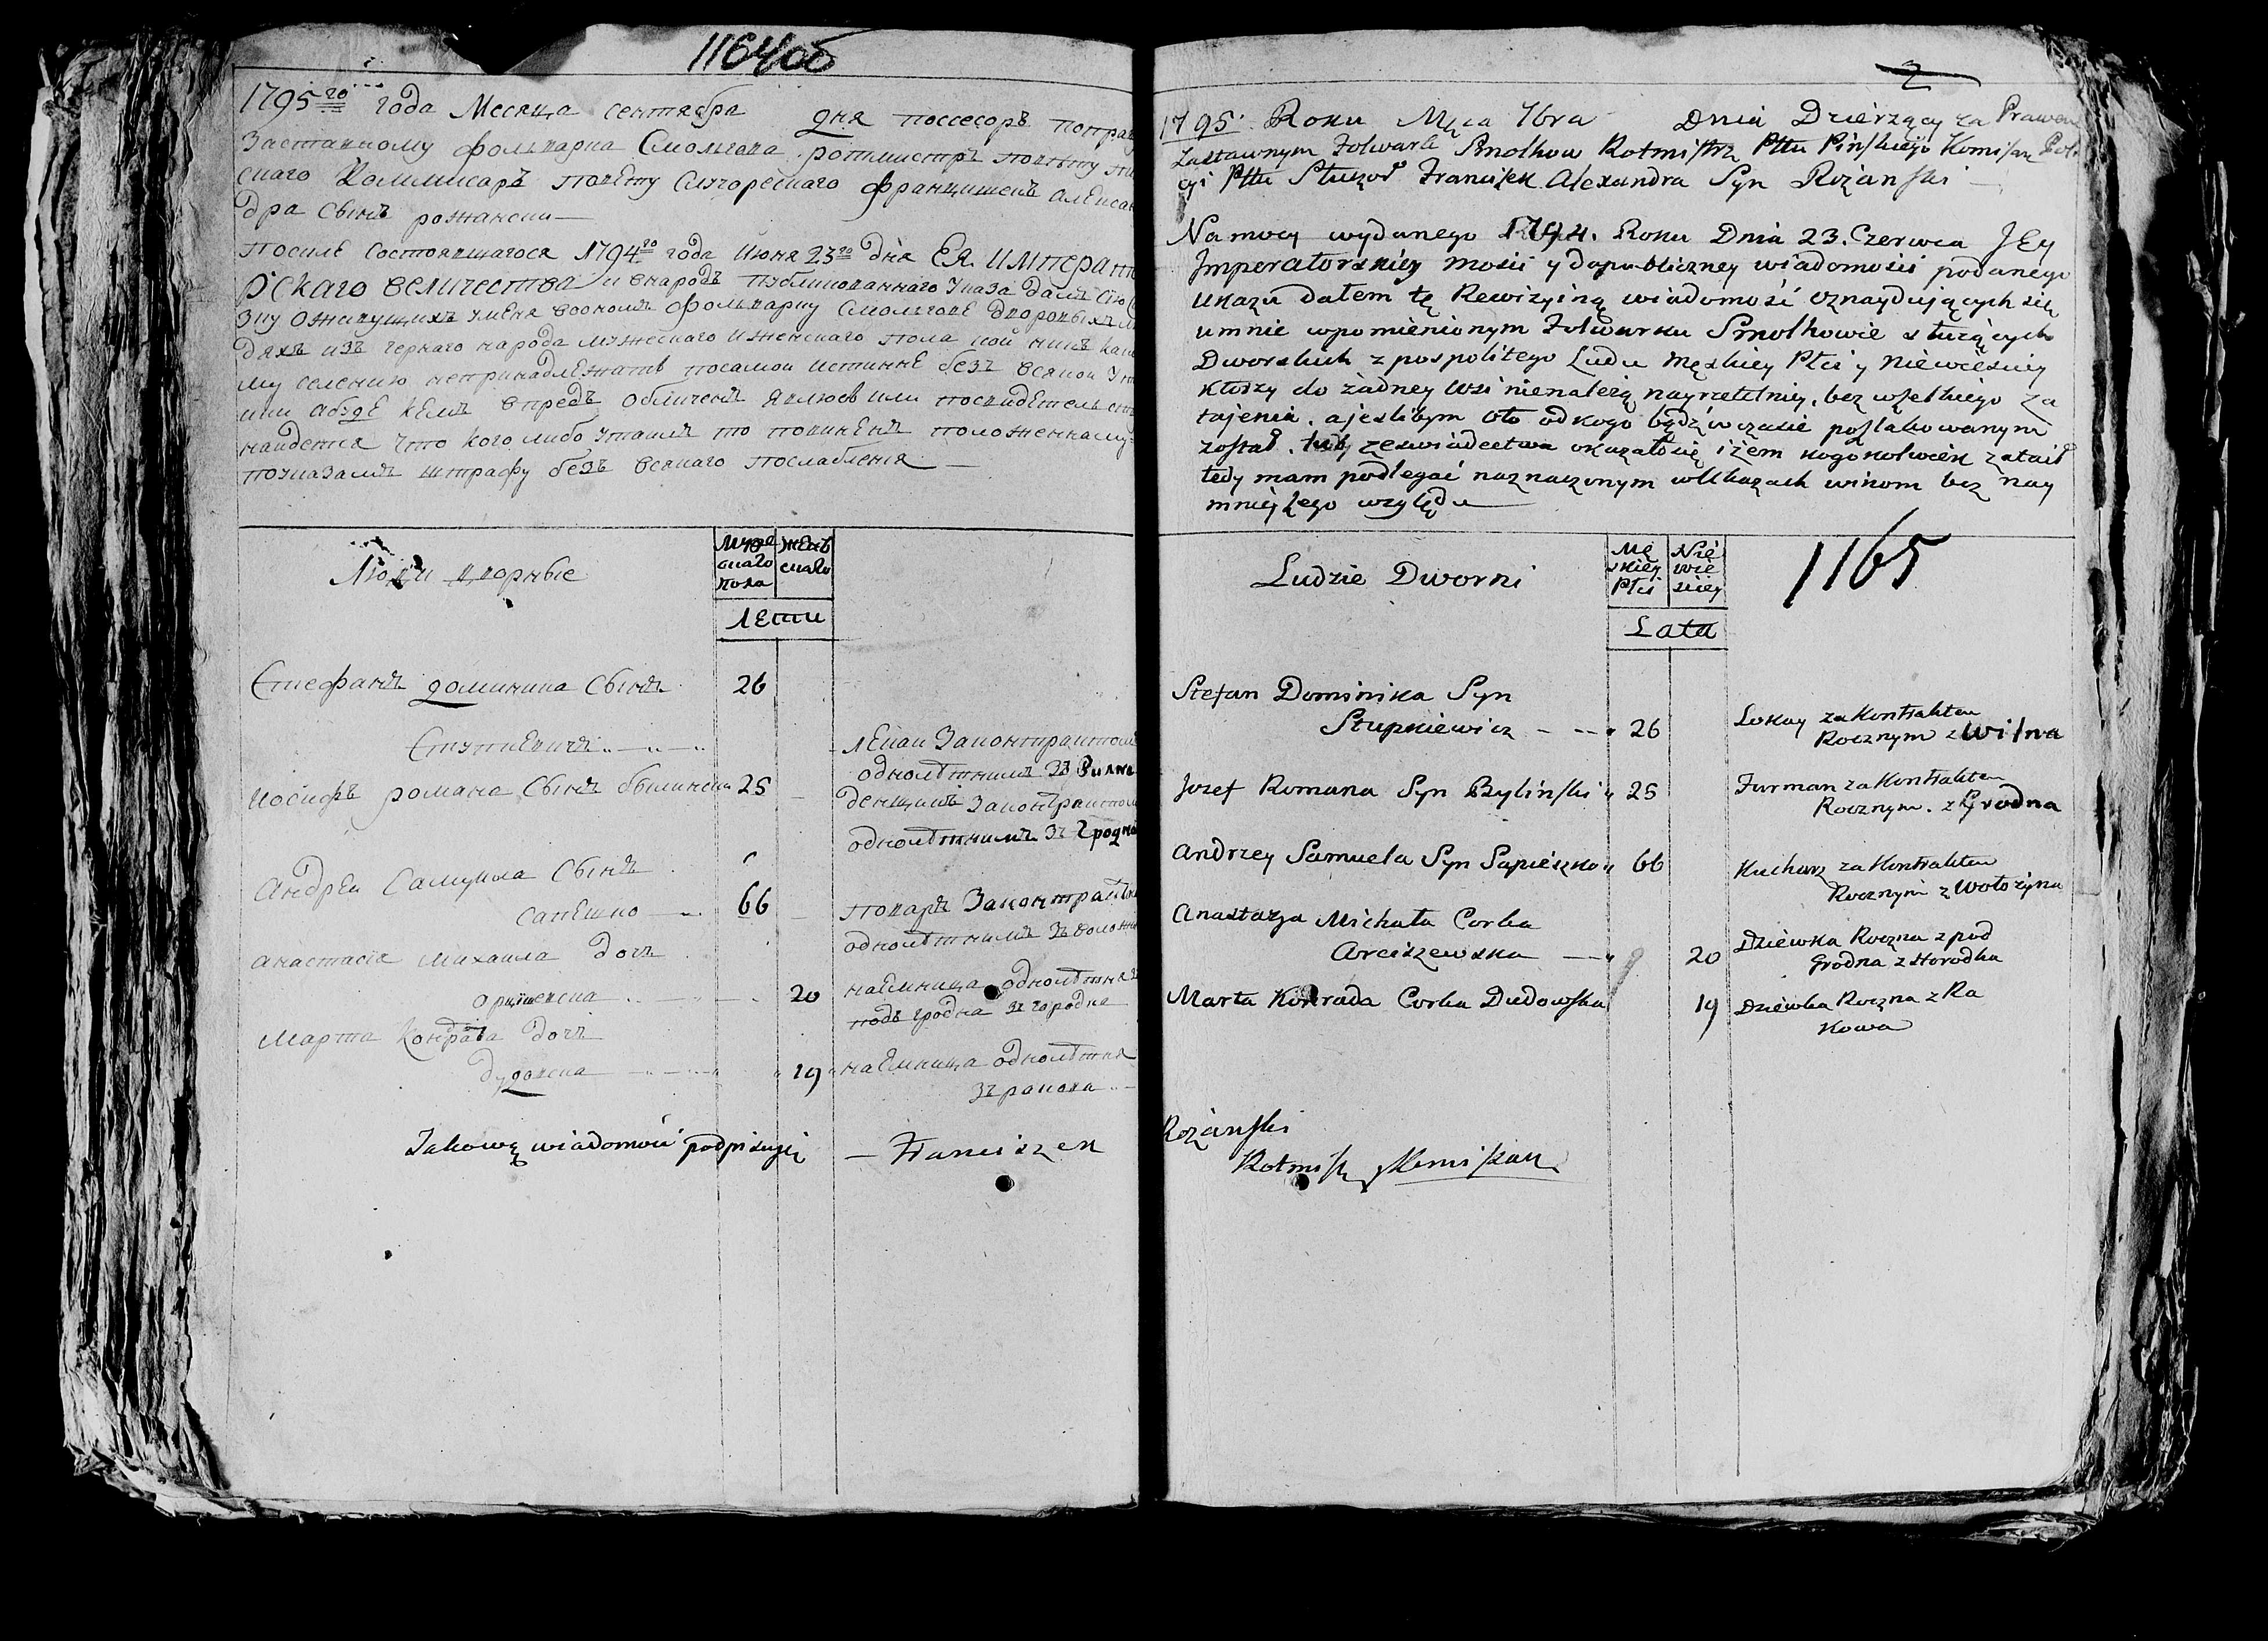 1164об
1795го года Месяца сентября дня поссесоръ поправу
Заставному фольварка Смолькова ротмистръ повѣту пин
скаго Коммисаръ повѣту Слуцорескаго францишекъ алеѯан
дра Сынъ рожански
посиле Состоявшагося 1794го года Июня 23го дня Ея Императо
рскаго величества и внародъ публикованнаго Указа далъ Сію
Зку Оживущихъ Уменя воономъ фольварку Смолькове дворовыхъ лю
дяхъ изъ чернаго народа мужескаго иженскаго пола кои никъ како
му селению непринадлежатъ посамои истинне безъ всякои Ут
или абуде кемъ впредь обличенъ явлюсь или посвидетельств
наидется что кого либо утаилъ то повиненъ положенному
поуказамъ штрафу безъ всякаго послабленя
Люди дворные
Муже
скаго
пола
женъ
скаго
Лети
Стефанъ доминика Сынъ 26
Ступкевичъ
лекаи Законтрактомъ
однолѣтнимъ зъ Вилна
иосифъ романа Сынъ былински 25
денщикъ Законтрактом
однолѣтнимъ зъ Гродна
Андреи Самуила Сынъ
сапешко 66
поваръ Законтракто
однолѣтнимъ зъ воложи
анастасія михаила дочъ
арцишевска 20
наемница однолѣтняя
подъ гродна зъ городка
Марта Кондрата дочъ
дудовска 19
наемница однолѣтняя
зъ ракова
Takowę wiadomość podpisuję — Franciszek
2
1795. Roku Mca 7bra Dnia Dzierżący za Prawem
Zastawnym Folwark Smolkow Rotmistrz Pttu Pińskiego Komisarz Poli
cyi Pttu Słuckog Franciszek Alexandra Syn Rożanski
Na mocy wydanego 1794. Roku Dnia 23. Czerwca JEy
Jmperatorskiey Mości y dopubliczney wiadomości podanego
ukazu dałem tę Rewizyiną wiadomość oznaydujących się
umnie wpomienionym Folwarku Smolkowie służących
Dworskich z pospolitego Ludu Męskiey Płci y Niewieściey
Którzy do żadney wsi nienależą nayrzetelniey, bez wszelkiego za
tajenia. a jeslibym oto odkogo bądź wczasie poszlakowanym
został. lub zeswiadectwa okazało się iżem kogokolwiek zataił
tedy mam podlegać naznaczonym wUkazach winom bez nay
mnieyszego względu
Ludzie Dworni
Mę
skiey
Płci
Nie
wie
sciey
1165
Lata
Stefan Dominika Syn
Stupkiewicz 26
Lokay za Kontraktem
Rocznym z Wilna
Jozef Romana Syn Bylinski 25
Furman za Kontraktem
Rocznym. z Grodna
Andrzey Samuela Syn Sapieszko 66
Kucharz za Kontraktem
Rocznym z Wołożyna
Anastazya Michała Corka
Arciszewska 20
Dziewka Roczna z pod
Grodna z Horodka
Marta Konrada Corka Dudowska 19
Dziewka Roczna z Ra
kowa
Rożanski
Rotmistrz y Komisarz